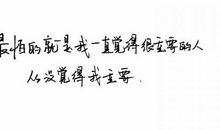 最怕的就是我一直觉得很重要的人
从没觉得我重要.